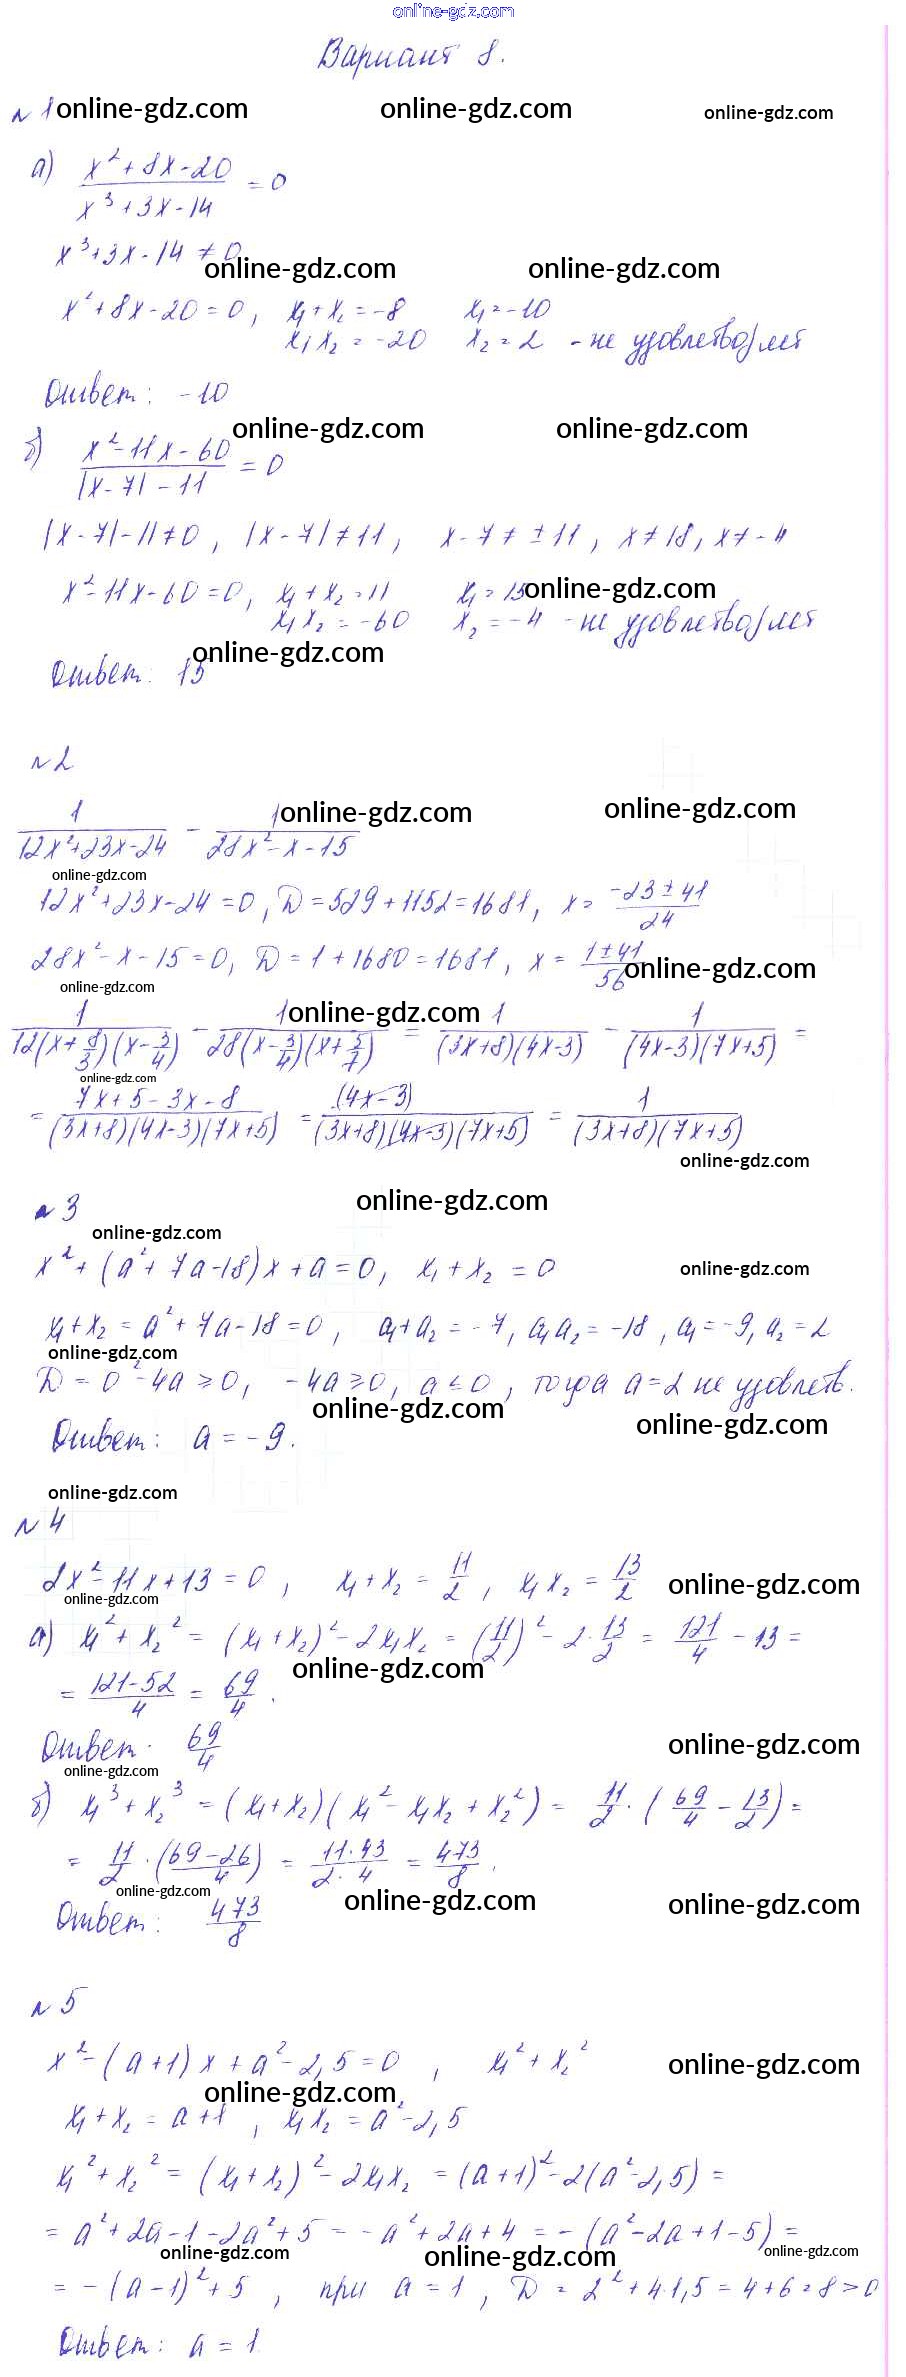 online-gdz.com
Вариант 8.
№1 online-gdz.com online-gdz.com online-gdz.com
а) (x²+8x-20)/(x³+3x-14) = 0
x³+3x-14≠0
online-gdz.com online-gdz.com
x²+8x-20=0, x₁+x₂=-8 x₁=-10
x₁x₂=-20 x₂=2 - не удовлетворяет
Ответ: -10
online-gdz.com online-gdz.com
б) (x²-11x-60)/(|x-7|-11) = 0
|x-7|-11≠0, |x-7|≠11, x-7≠±11, x≠18, x≠-4
x²-11x-60=0, x₁+x₂=11 x₁=15 online-gdz.com
x₁x₂=-60 x₂=-4 - не удовлетворяет
online-gdz.com
Ответ: 15
№2
1/(12x²+23x-24) - 1/(28x²-x-15) online-gdz.com online-gdz.com
online-gdz.com
12x²+23x-24=0, D=529+1152=1681, x=(-23±41)/24
28x²-x-15=0, D=1+1680=1681, x=(1±41)/56 online-gdz.com
online-gdz.com
online-gdz.com
1/(12(x+8/3)(x-3/4)) - 1/(28(x-3/4)(x+5/7)) = 1/((3x+8)(4x-3)) - 1/((4x-3)(7x+5)) =
online-gdz.com
= (7x+5-3x-8)/((3x+8)(4x-3)(7x+5)) = (4x-3)/((3x+8)(4x-3)(7x+5)) = 1/((3x+8)(7x+5))
online-gdz.com
№3 online-gdz.com
online-gdz.com
x²+(a²+7a-18)x+a=0, x₁+x₂=0 online-gdz.com
x₁+x₂=a²+7a-18=0, a₁+a₂=-7, a₁a₂=-18, a₁=-9, a₂=2
online-gdz.com
D=0²-4a≥0, -4a≥0, a≤0, тогда a=2 не удовлетв.
online-gdz.com online-gdz.com
Ответ: a=-9.
online-gdz.com
№4
2x²-11x+13=0, x₁+x₂=11/2, x₁x₂=13/2 online-gdz.com
online-gdz.com
а) x₁²+x₂²=(x₁+x₂)²-2x₁x₂=(11/2)²-2·13/2=121/4-13=
online-gdz.com
=(121-52)/4=69/4.
Ответ. 69/4 online-gdz.com
online-gdz.com
б) x₁³+x₂³=(x₁+x₂)(x₁²-x₁x₂+x₂²)=11/2·(69/4-13/2)=
=11/2·((69-26)/4)=(11·43)/(2·4)=473/8.
online-gdz.com online-gdz.com online-gdz.com
Ответ: 473/8
№5
x²-(a+1)x+a²-2,5=0, x₁²+x₂² online-gdz.com
online-gdz.com
x₁+x₂=a+1, x₁x₂=a²-2,5
x₁²+x₂²=(x₁+x₂)²-2x₁x₂=(a+1)²-2(a²-2,5)=
=a²+2a-1-2a²+5=-a²+2a+4=-(a²-2a+1-5)=
online-gdz.com online-gdz.com online-gdz.com
=-(a-1)²+5, при a=1, D=2²+4·1,5=4+6=8>0
Ответ: a=1